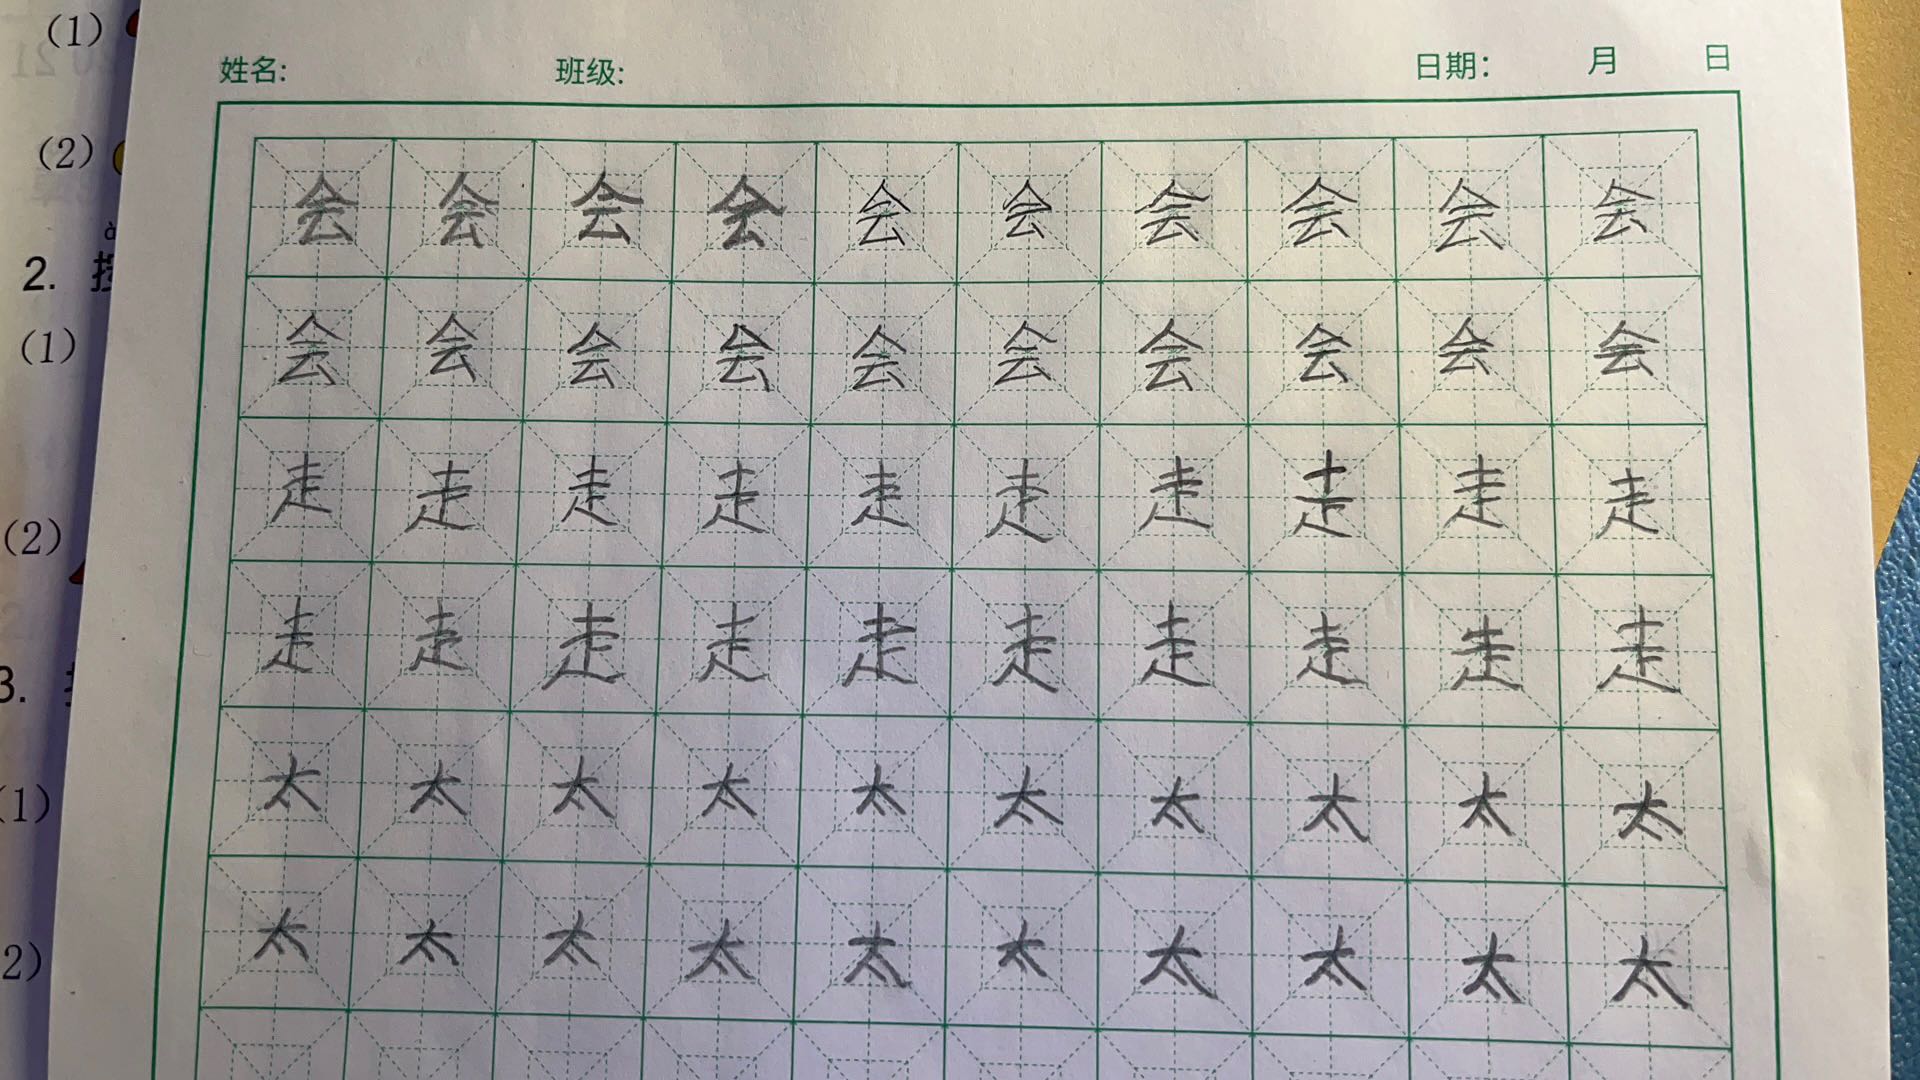 (1)
姓名: 班级: 日期: 月 日
(2)
会 会 会 会 会 会 会 会 会 会
2.
(1)
会 会 会 会 会 会 会 会 会 会
走 走 走 走 走 走 走 走 走 走
(2)
走 走 走 走 走 走 走 走 走 走
3.
太 太 太 太 太 太 太 太 太 太
(1)
太 太 太 太 太 太 太 太 太 太
2)